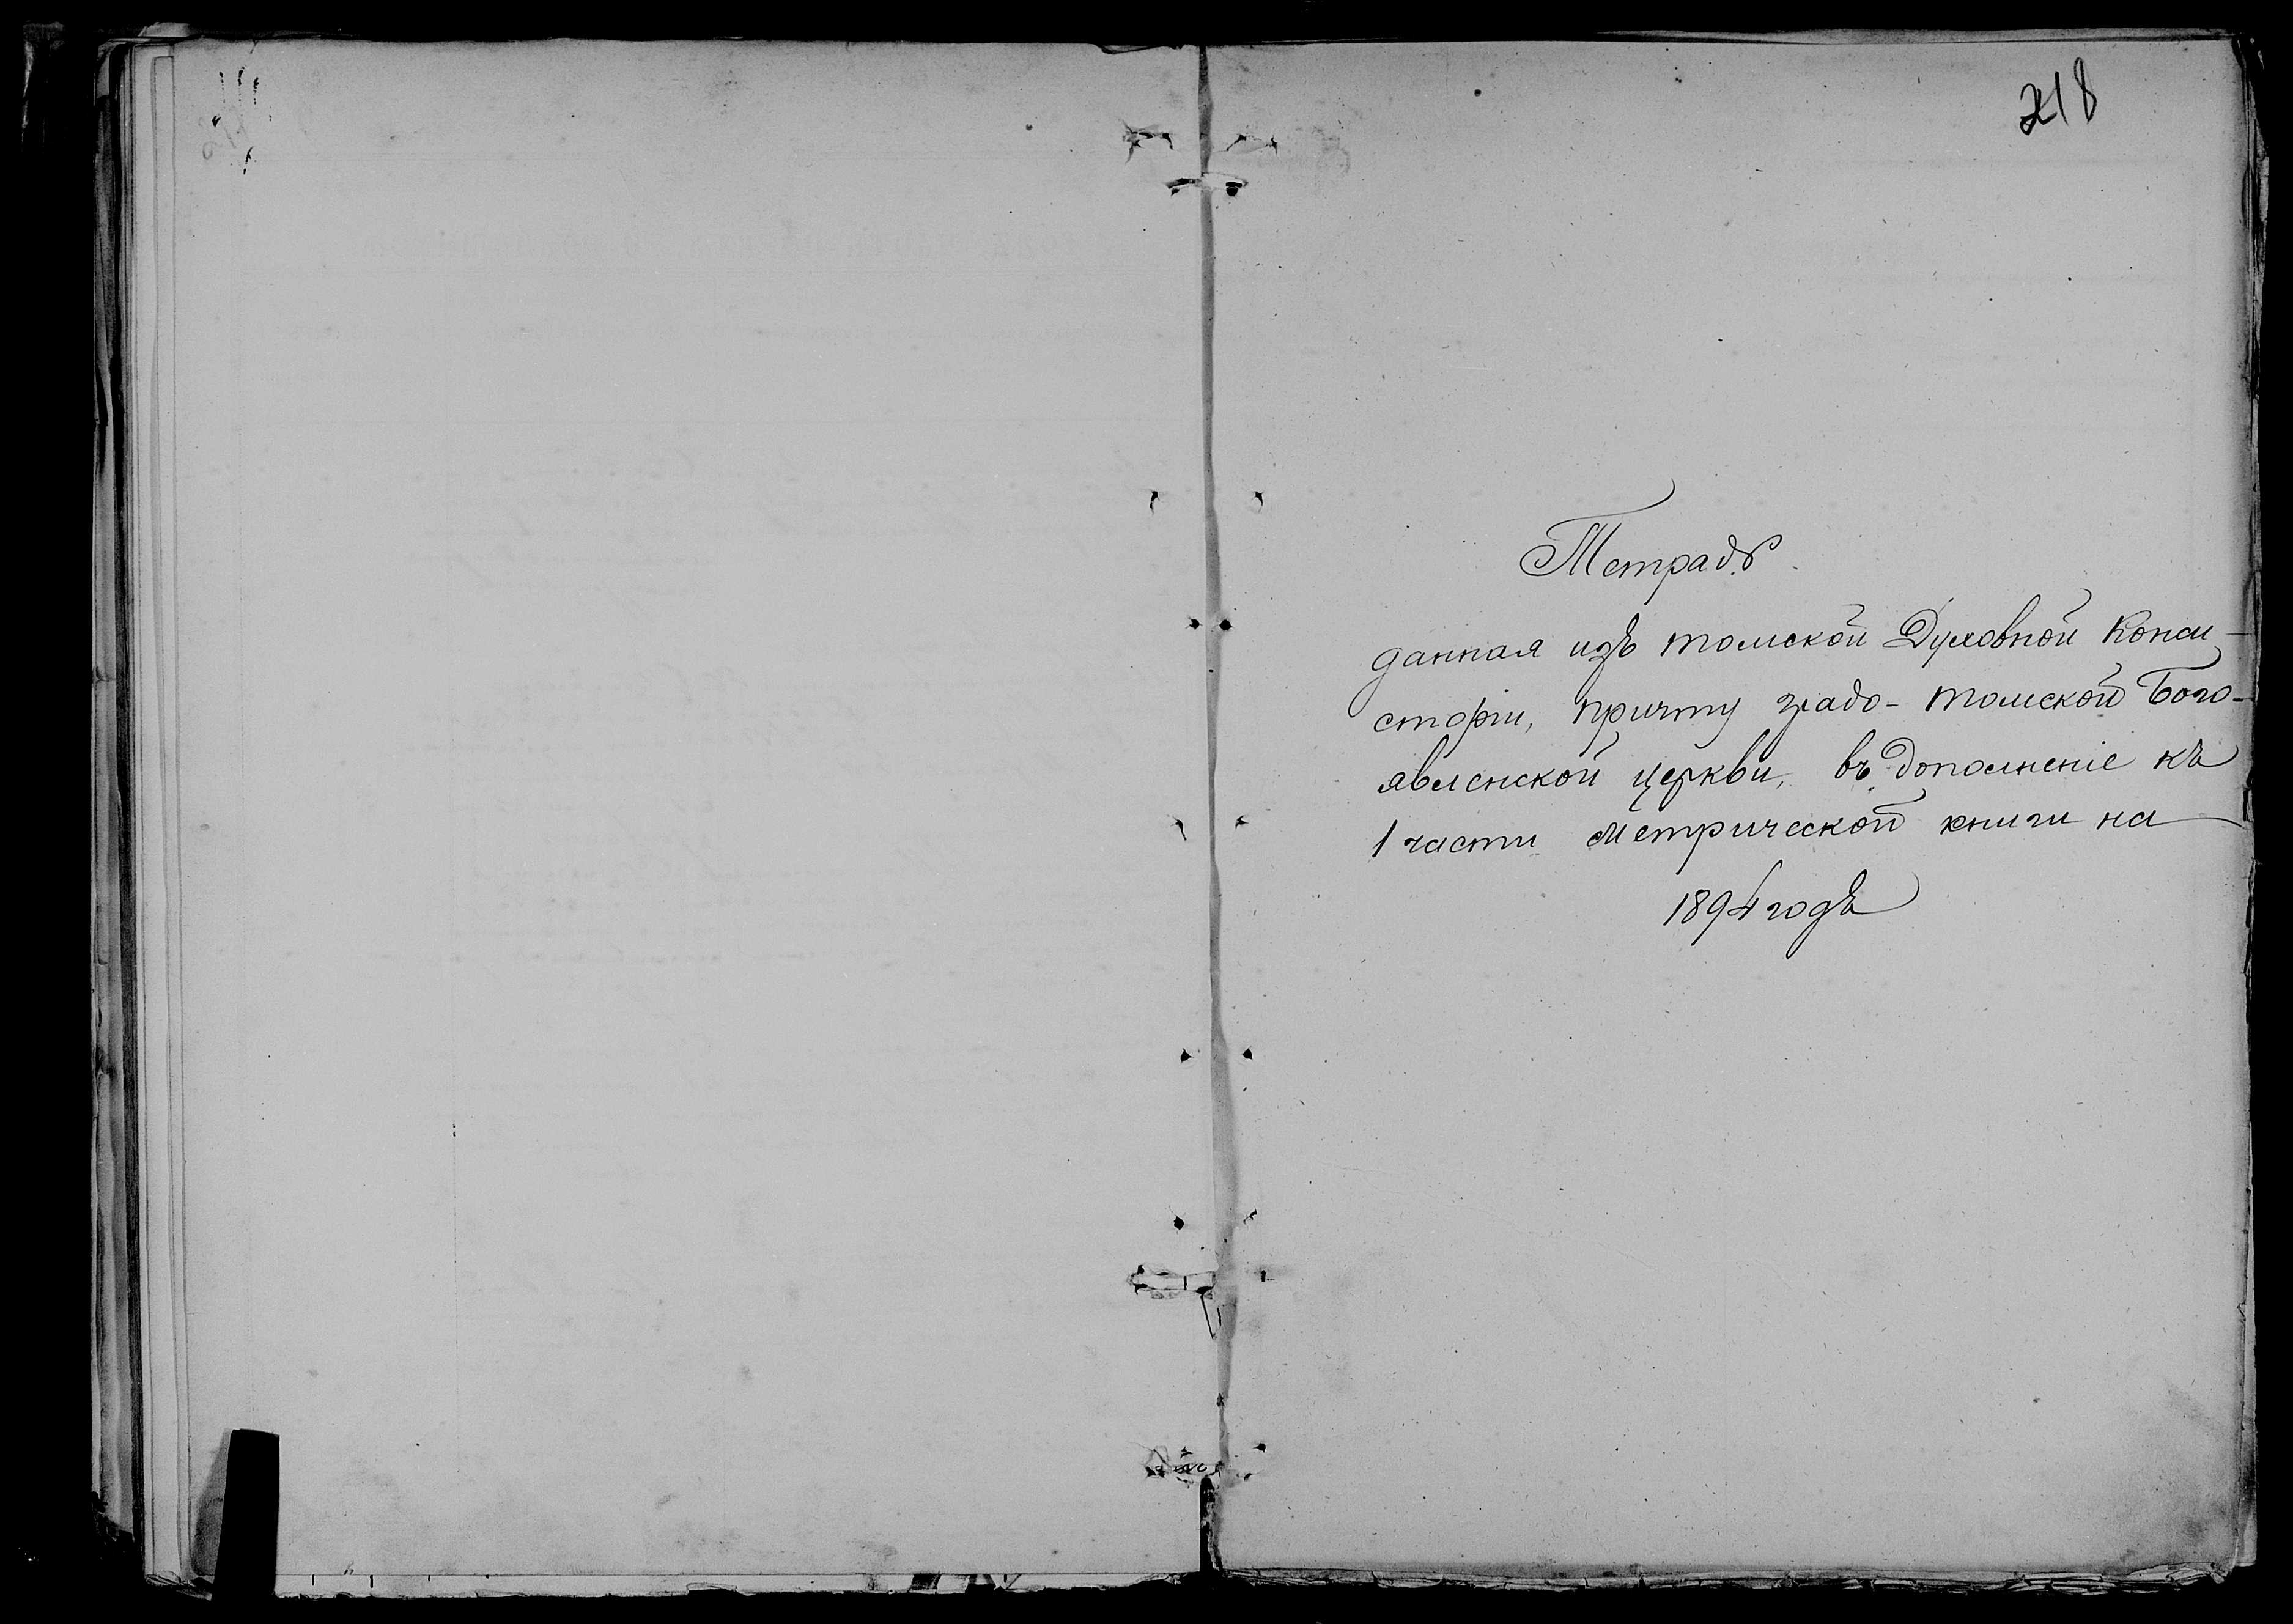 218
Тетрадь
данная изъ томской Духовной Конси-
сторіи, причту градо-томской Бого-
явленской церкви, въ дополненіе къ
1 части метрической книги на
1894 годъ